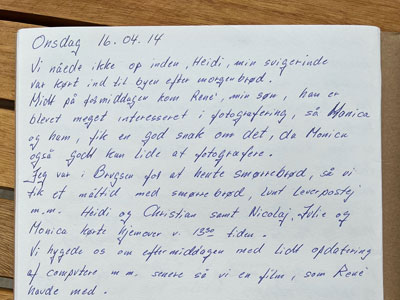 Onsdag 16.04.14
Vi nåede ikke op inden, Heidi, min svigerinde
var kørt ind til byen efter morgenbrød.
Midt på formiddagen kom René, min søn, han er
blevet meget interesseret i fotografering, så Monica
og ham, fik en god snak om det, da Monica
også godt kan lide at fotografere.
Jeg var i Brugsen for at hente smørrebrød, så vi
fik et måltid med smørrebrød, lunt leverpostej
m.m. Heidi og Christian samt Nicolaj, Julie og
Monica kørte hjemover v. 13.30 tiden.
Vi hygede os om eftermiddagen med lidt opdatering
af computere m.m. senere så vi en film, som René
havde med.